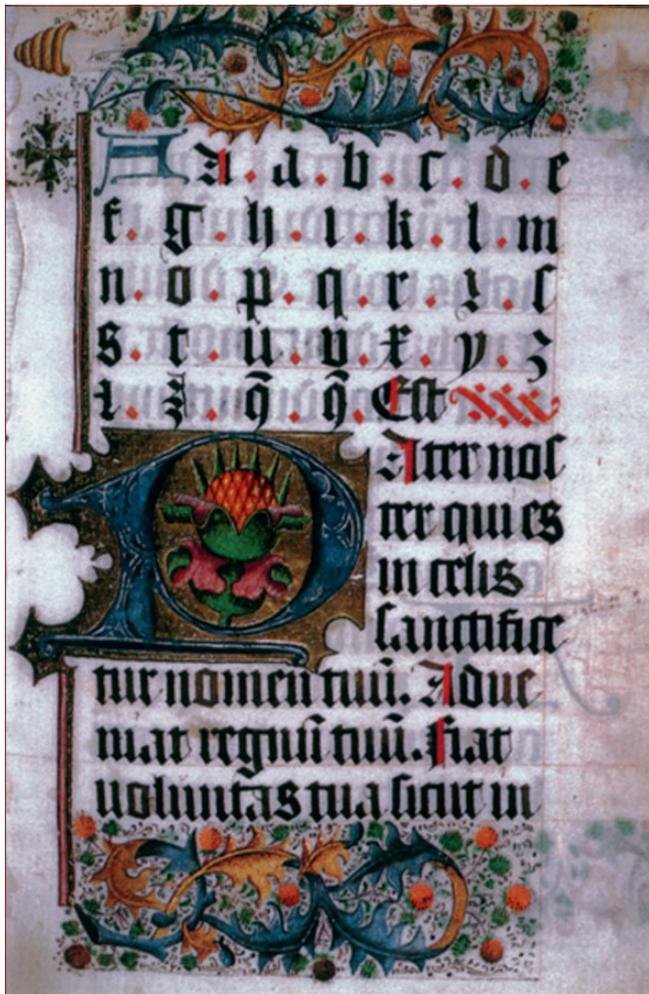 A A. a. b. c. d. e
f. g. h. i. k. l. m
n. o. p. q. r. ꝛ. ſ
s. t. u. v. x. y. z
⁊. ꝫ. q̄. q̄. Eſt
Pater noſ
ter qui es
in celis
ſanctifice
tur nomen tuū. Adue
niat regnū tuū. fiat
voluntas tua ſicut in